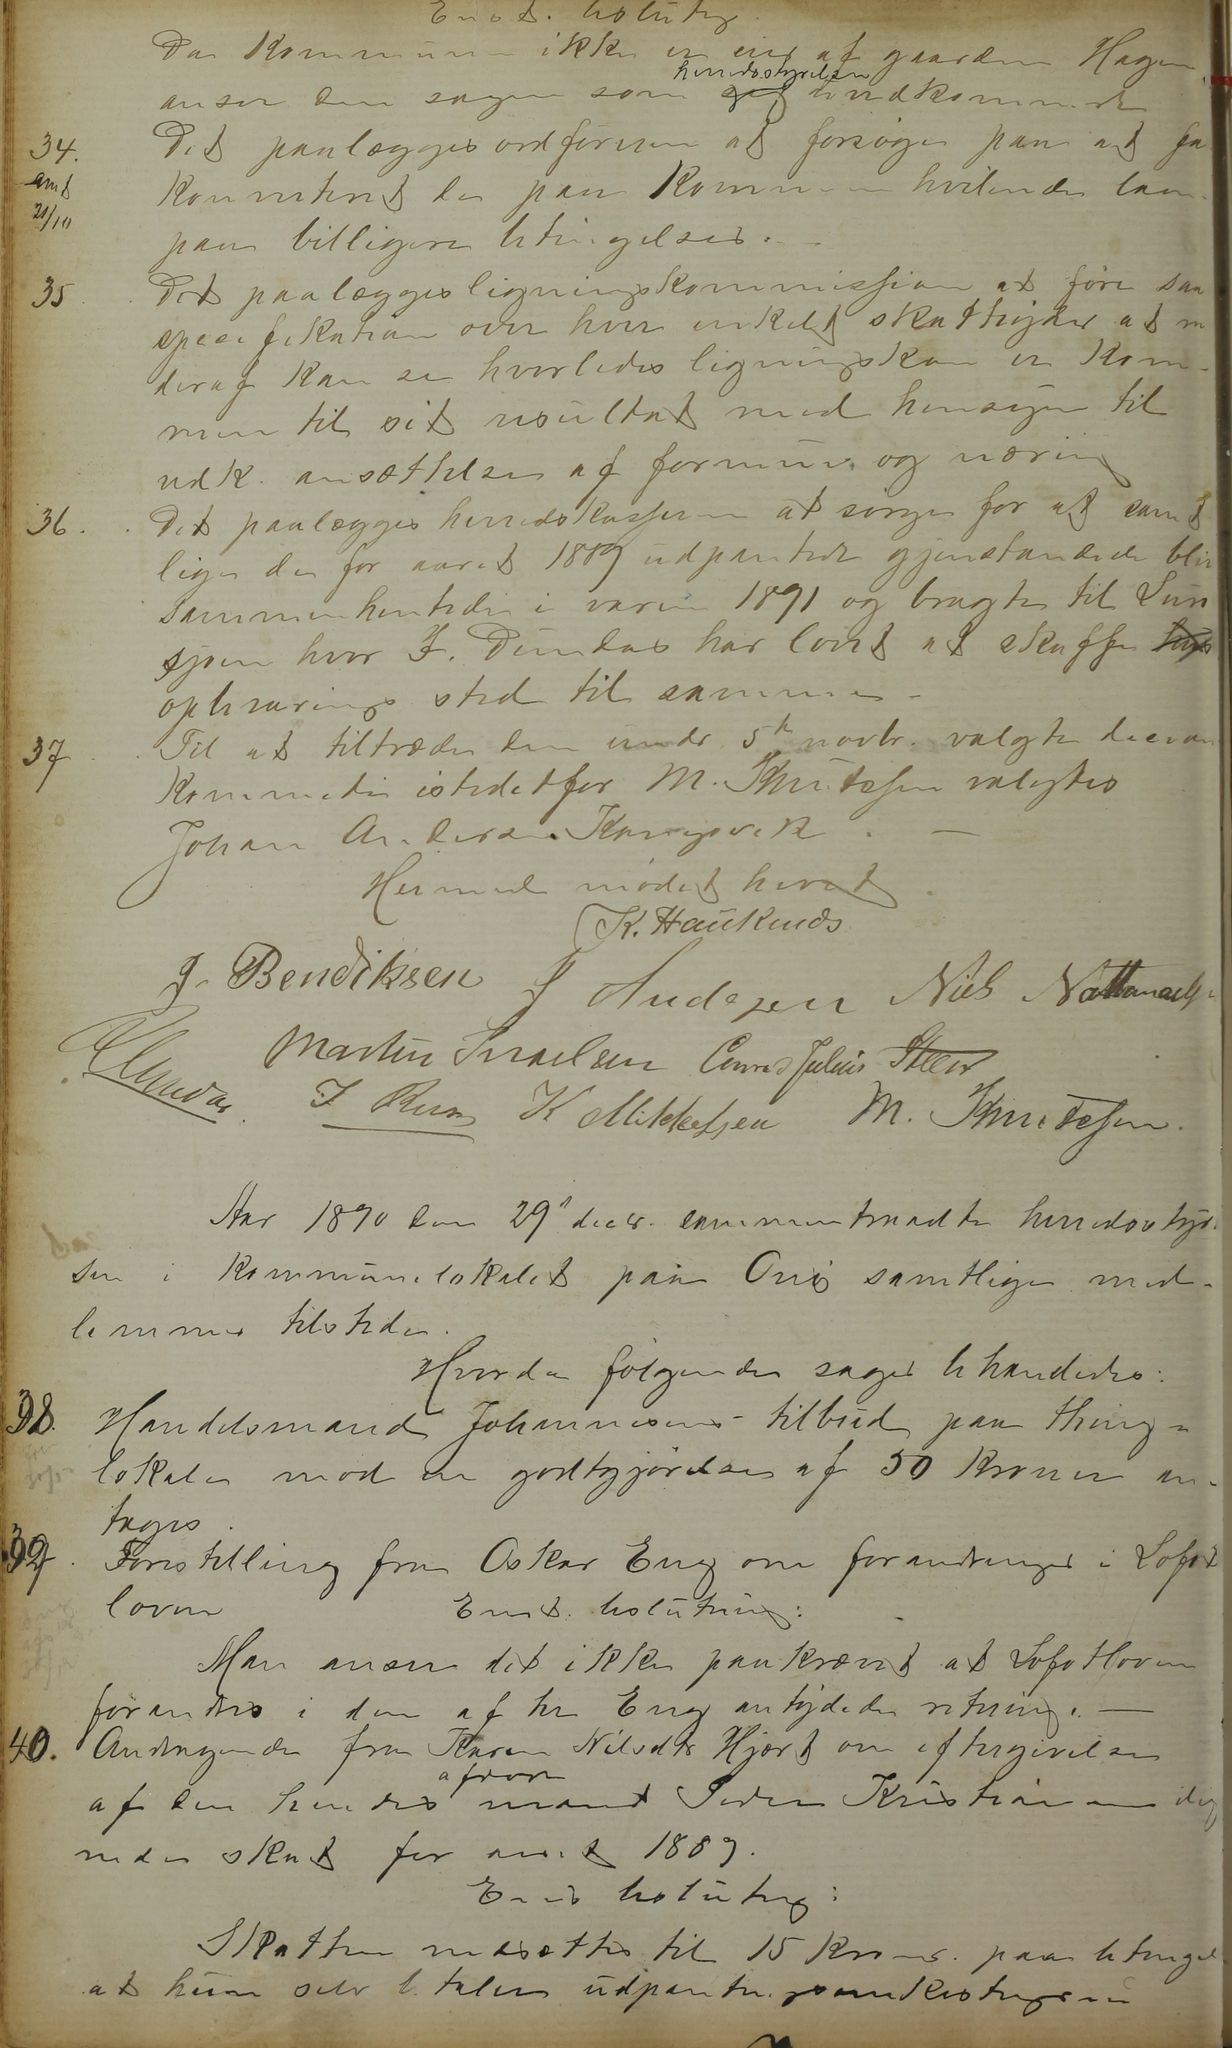 Enst. beslutng.
Da Kommunen ikke er eier af gaarden Hagen
anser den sagen som herredsstyrelsen uvedkommende
34. Det paalægges ordføreren at forsøge paa at faa
amt Konverteret de paa Kommunen hvilende laan
21/10
paa billigere betingelser. —
35 Det paalægges ligningskommissionen at føre saa
specifikation over hver enkelt skatteyder at m
deraf kan se hvorledes ligningskom er kom-
men til sit resultat med hensyn til
udk. ansættelse af formue og næring
36. Det paalægges herredskasseren at sørge for at samt
lige de for aaret 1889 udpantede gjenstandede bliv
sammenhentede i vaaren 1891 og bragte til
sjøen hvor J. Dundas har lovet at skaffe
opbevarings sted til samme —
37 Til at tiltræde den under 5te novbr. valgte
Komite istedetfor M. Knutssen valgtes
Johan Andersen Kongsvik. —
Hermed mødet hævet.
K. Haukenæs
J. Bendiksen J Andersen Niels Nathanaels
Martin Israelsen Conrad Julius Steen
Dundas. K Mikkelsen M. Knutssen.
Aar 1890 den 29de decbr. sammentraadte herredssty
sen i Kommunelokalet paa Ons samtlige med-
lemmer tilstede.
Hvorda følgende sager behandledes:
38. Handelsmand Johannesens tilbud paa thing-
lokale mod en godtgjørelse af 50 Kroner an-
tages.
39. Forestilling fra Oskar Eng om forandringer i Lofot
loven Enst. beslutning:
Man anser det ikke paakrævet at Lofotloven
forandres i den af hr Eng antydede retning. —
40. Andragende fra Karen Nilsdtr Hjert om eftergivelse
af den hendes afdøde mand Peder Kristiansen ilig
nede skat for aaret 1889.
Enst beslutng:
Skatten nedsættes til 15 Kroner. paa betingels
at hun selv betaler udpantn.